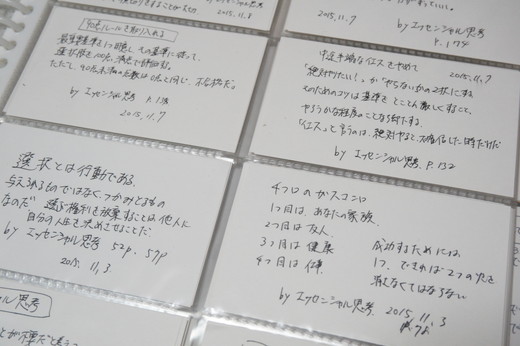 2015.11.9
2015.11.7
by エッセンシャル思考
P.174
90点ルールを取り入れる
最重要基準を1つ用意し、その基準に従って、
選択肢を100点満点で評価する。
ただし、90点未満の点数は0点と同じ、不合格だ。
by エッセンシャル思考 P.138
2015.11.7
中途半端なイエスをやめて 2015.11.7
「絶対やりたい!」か「やらない」かの2択にする
そのためのコツは基準をとことん厳しくすること、
やろうかな程度のことなら却下する。
「イエス」と言うのは、絶対やると確信した時だけだ
by エッセンシャル思考 P.132
選択とは行動である。
与えられるものではなく、つかみとるもの
なのだ 選ぶ権利を放棄することは他人に
自分の人生を決めさせることだ。
by エッセンシャル思考 52p.57p
2015.11.3
4つ口のガスコンロ
1つ目は、あなたの家族、
2つ目は友人、
3つ目は健康 成功するためには
4つ目は仕事、 1つ、できれば2つの火を
消さなくてはならない
by エッセンシャル思考、2015.11.3
シャル思考